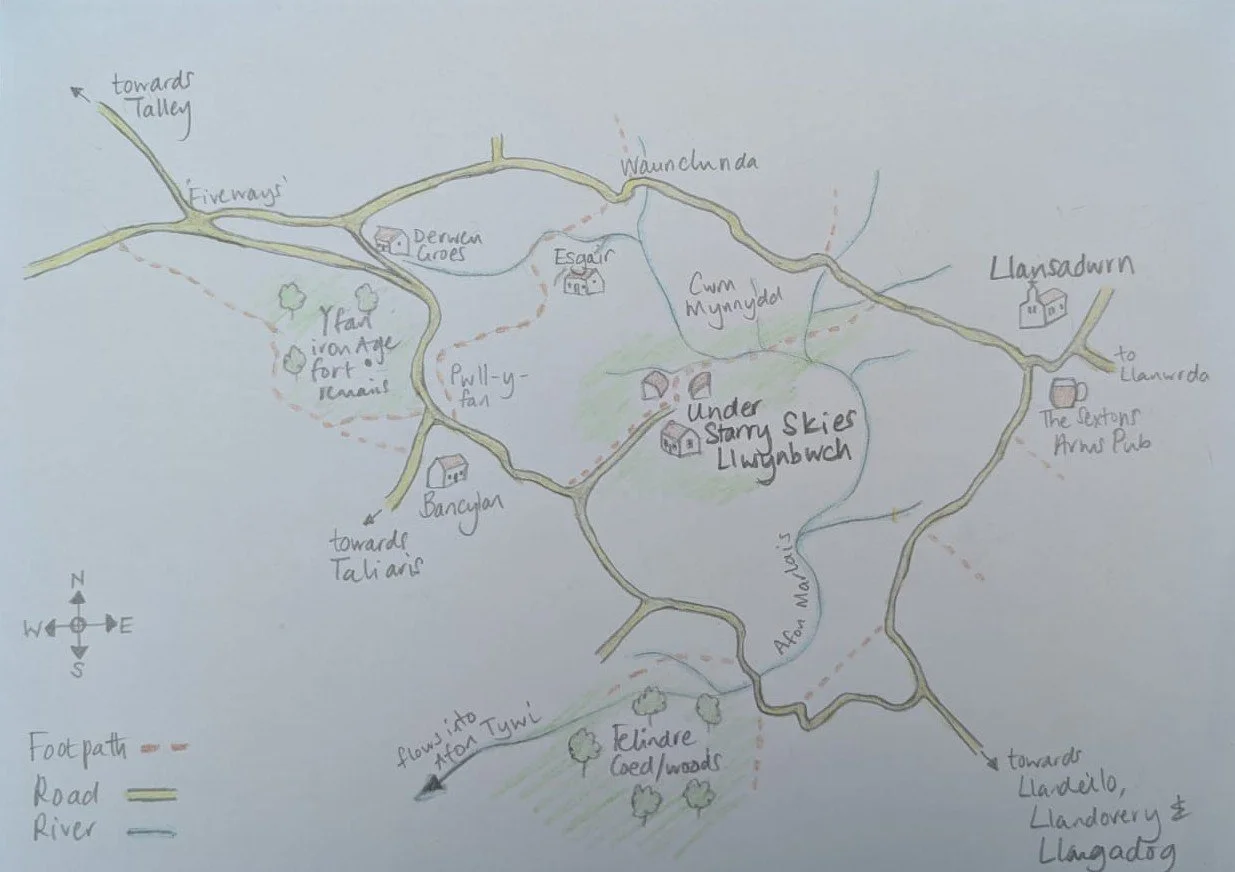 towards
Talley
'Fiveways'
Waunclunda
Derwen
Groes
Esgair
Cwm
Mynnydd
Llansadwrn
to
Llanwrda
Y fan
iron Age
fort
remains
Pwll-y-
fan
Under
Starry Skies
Llwynbwch
The Sextons
Arms Pub
Bancylan
towards
Taliaris
Afon Marlais
N
W
E
S
flows into
Afon Tywi
Telindre
Coed/woods
Footpath
Road
River
towards
Llandeilo,
Llandovery &
Llangadog